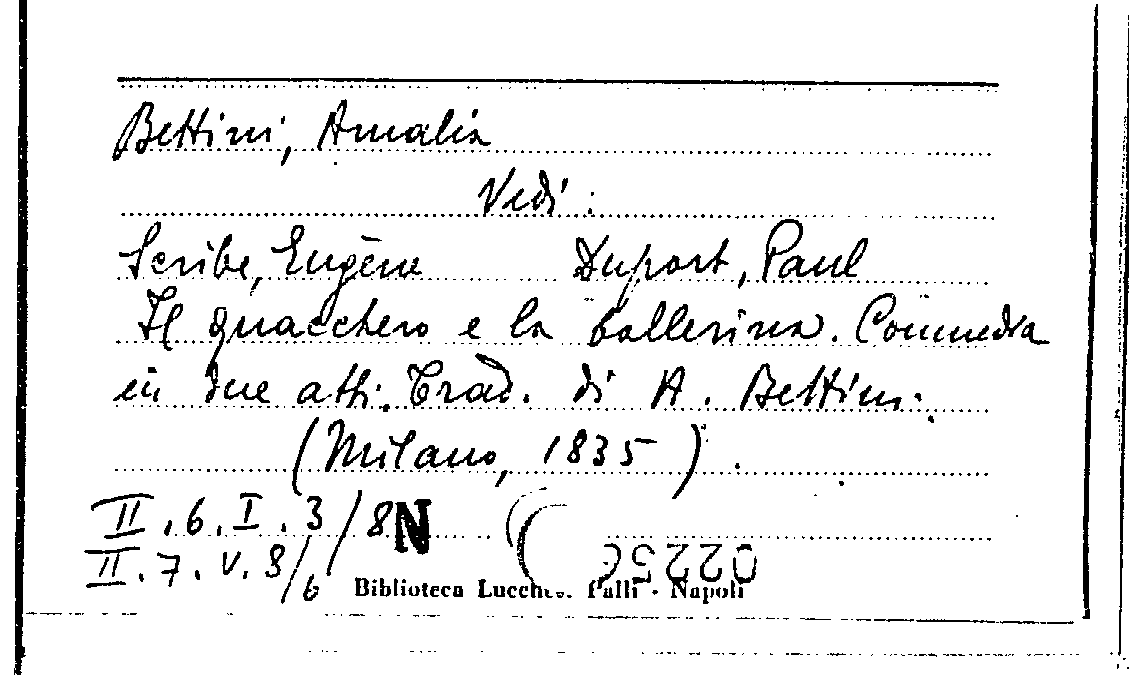 Bettini, Amalia
Vedi:
Scribe, Eugène Duport, Paul
Il quacchero e la ballerina. Commedia
in due atti. Trad. di A. Bettini.
(Milano, 1835).
II.6.I.3/8 N
II.7.V.8/6
Biblioteca Lucches. Palli - Napoli